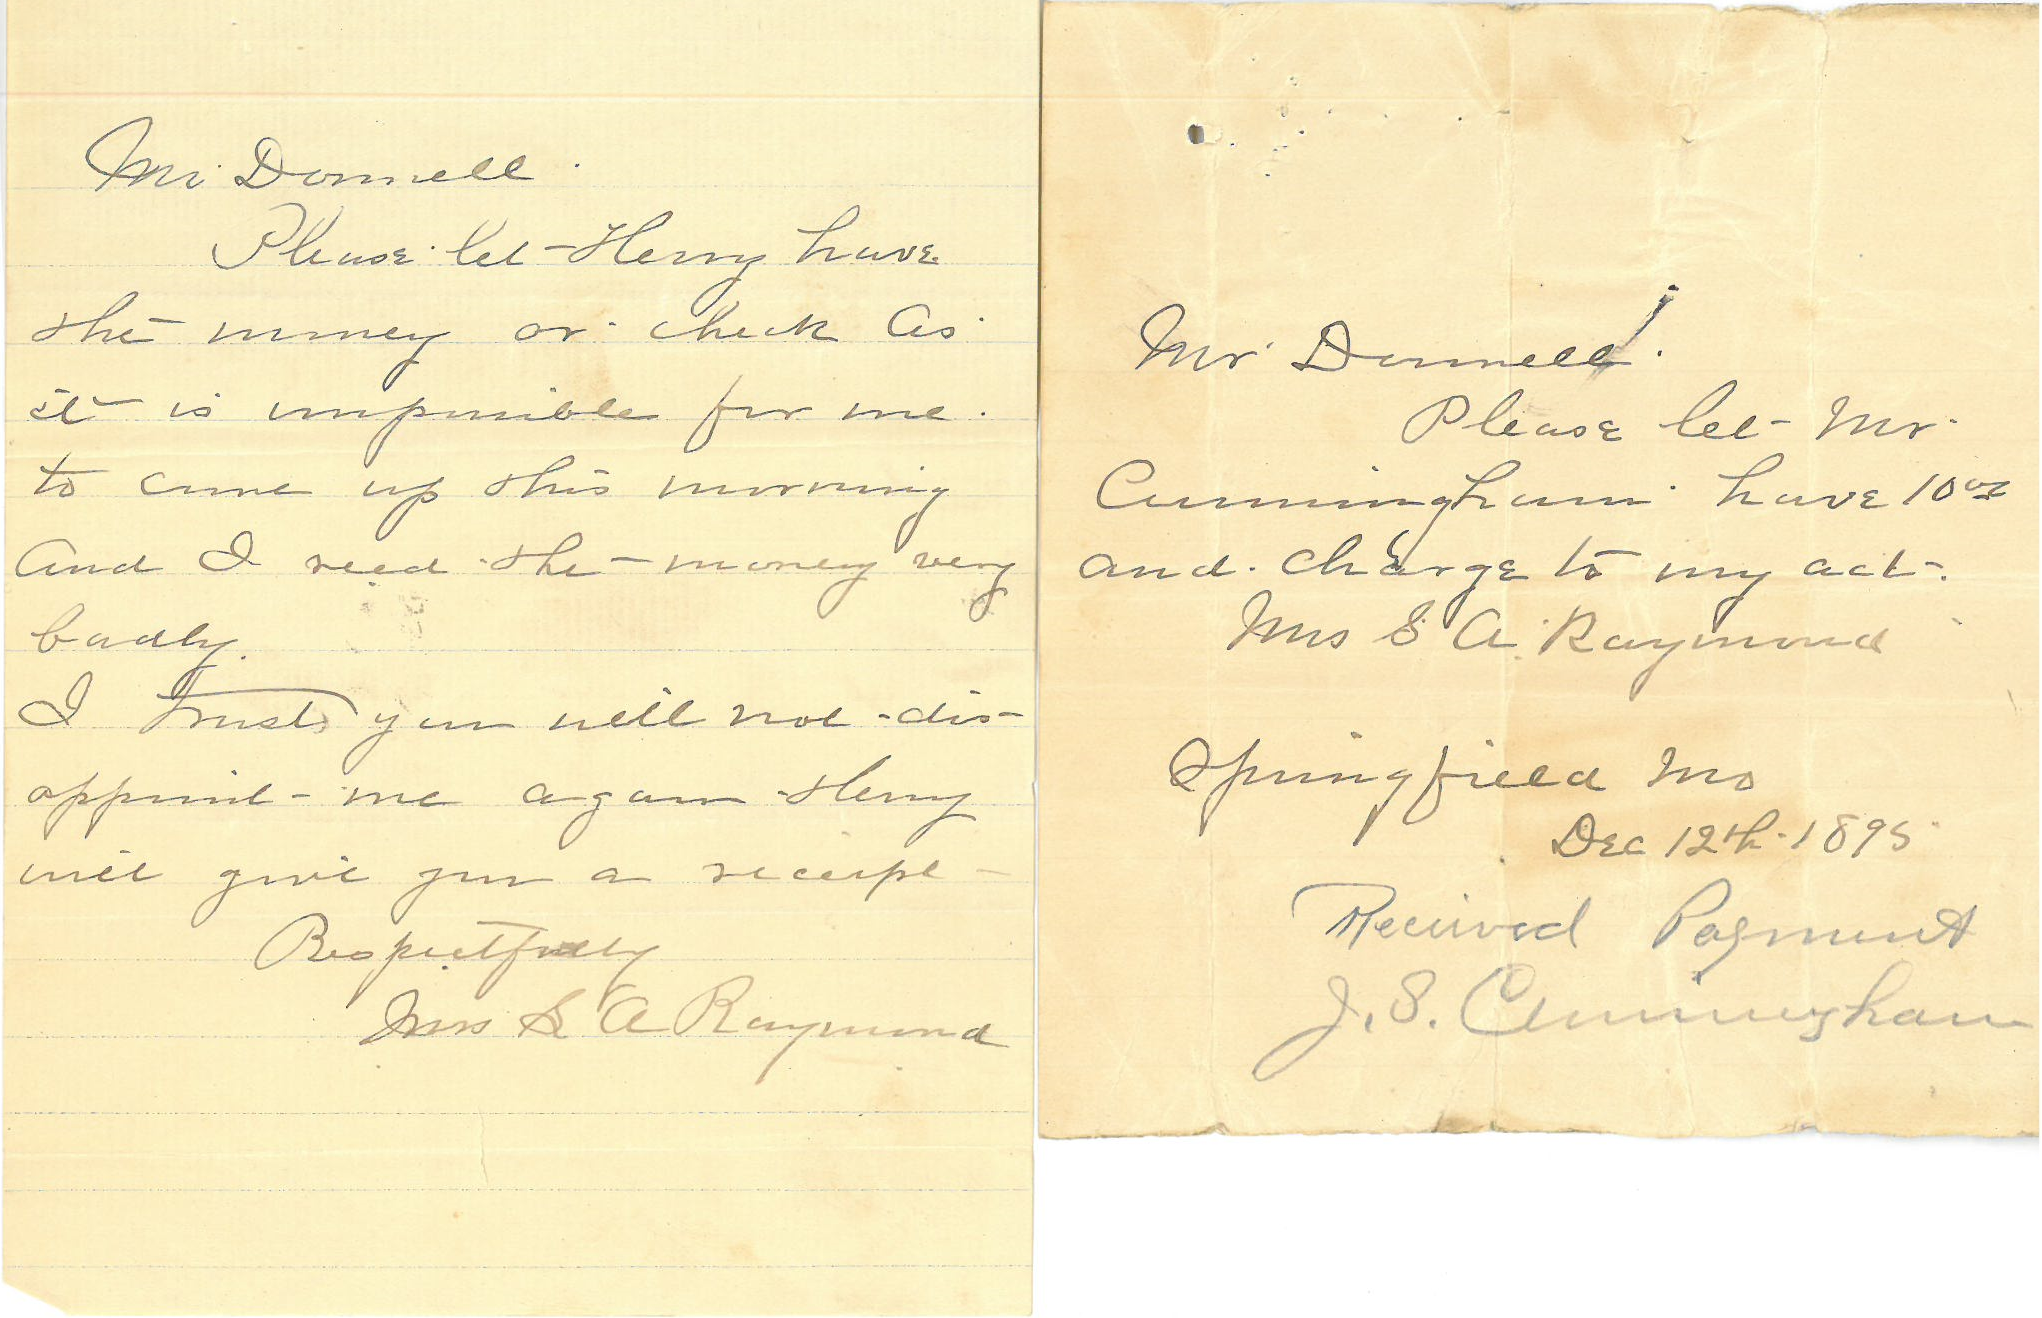 Mr Donnell
Please let Henry have
the money or check as
it is impossible for me
to come up this morning
and I need the money very
badly.
I trust you will not dis-
appoint me again Henry
will give you a receipt
Respectfully
Mrs S A Raymond
Mr Donnell.
Please let Mr
Cunningham have 10 00
and charge to my act.
Mrs S A Raymond
Springfield Mo
Dec 12th 1895
Received Payment
J. S. Cunningham